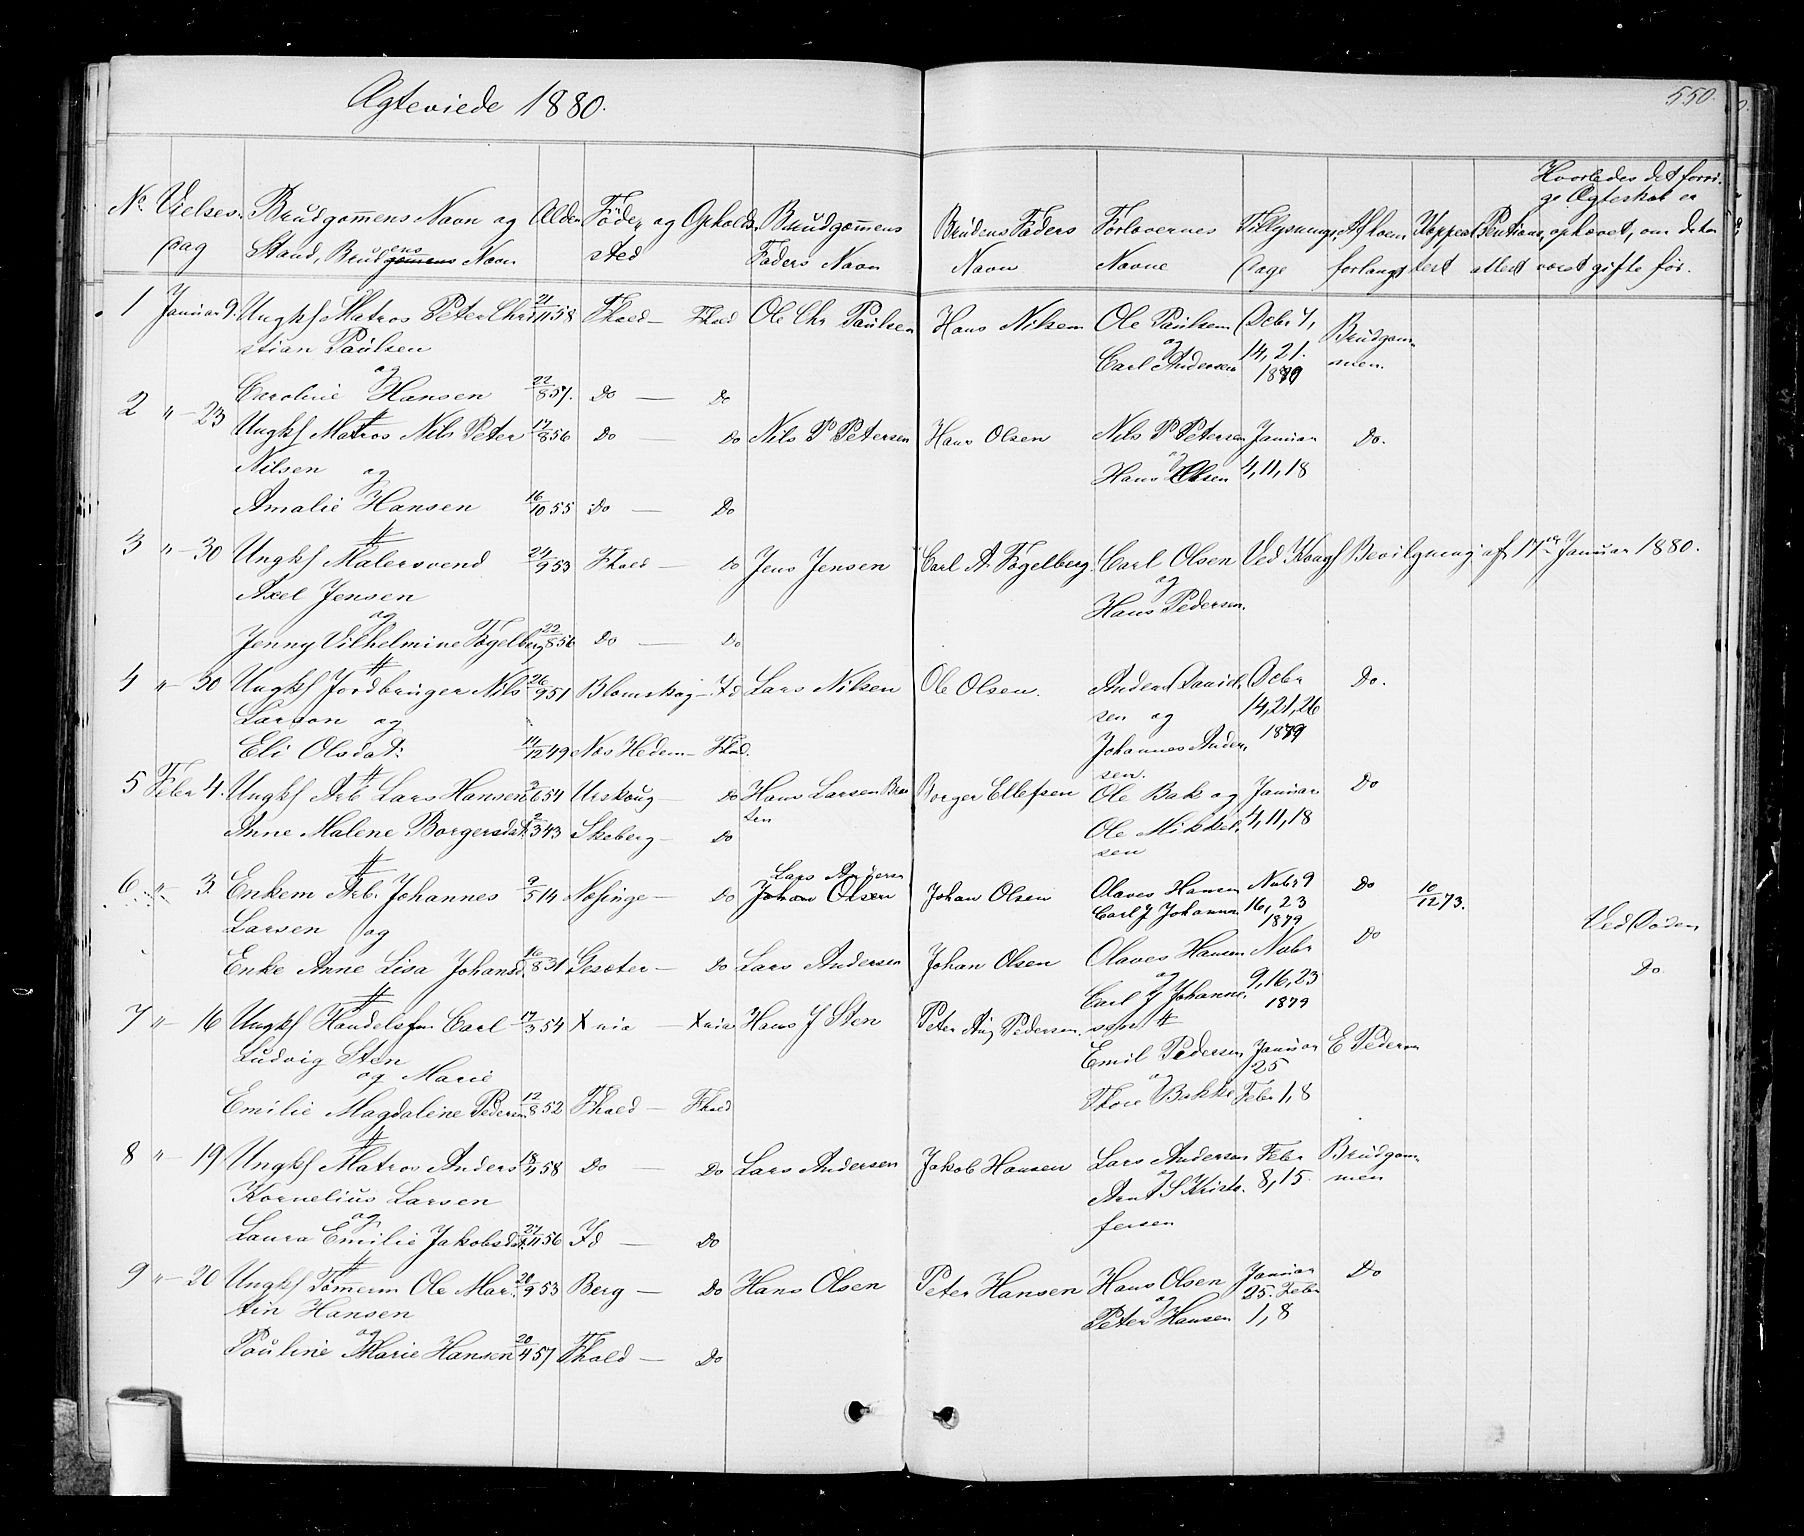 Ægteviede 1880.
550.
No Vielses- Brudgommens Navn og Alder Føde- og Opholds- Brudgommens Brudens Faders Forlovernes Tillysnings- Af hvem Koppe- Hvorledes det forri-
dag Stand, Brudens Navn sted Faders Navn Navn Navne Dage forlangt ge Ægteskab er
ophævet, om de har
været gifte før.
1 Januar 9. Ungkf Matros Peter Chri- 21/11 58 Fhald — Fhald Ole Chr Paulsen Hans Nilsen Ole Paulsen Debr 7,
stian Paulsen og Carl Andersen 14, 21. 1879 Brudgom-
men.
og
Caroline Hansen 22/8 57. Do — Do
2 " — 23 Ungkf Matros Nils Peter 17/8 56 Do — Do Nils P Petersen Hans Olsen Nils P Petersen Januar Do.
Nilsen og Hans Olsen 4, 11, 18
Amalie Hansen 16/10 55 Do — Do
3 " — 30 Ungkf Malersvend 24/9 53 Fhald — Do Jens Jensen Carl A. Fogelberg. Carl Olsen Ved Kongl Bevilgning af 17de Januar 1880.
Axel Jensen og Hans Pedersen.
og
Jenny Vilhelmine Fogelberg 22/8 56 Do — Do
4 " — 30 Ungkf Jordbruger Nils 26/9 51 Blomskog — Id Lars Nilsen Ole Olsen. Anders Daniel- Debr Do.
Larson og sen og 14, 21, 26
Eli Olsdat: 14/12 49 Nes Hedem — Fhald. Johannes Ander- 1879
sen.
5 Febr 4. Ungkf Arb Lars Hansen 3/6 54 Urskoug — Do Hans Larsen Borger Ellefsen Ole Bak og Januar Do
Anne Malene Borgersdat. 2/3 43 Skeberg — Do Ole Mikkel- 4, 11, 18
sen
6 " — 3. Enkem Arb. Johannes 9/5 14 Do Lars Andersen Johan Olsen Johan Olsen Olaves Hansen Nobr 9 Do 10/12 73.
Larsen og Carl J Johanne. 16, 23 1879 Ved Døden
Enke Anne Lisa Johansd. 16/8 31 Gesæter — Do Lars Andersen Johan Olsen Olaves Hansen Nobr Do Do.
og Carl J Johanne- 9, 16, 23
sen 1879
7 " — 16 Ungkf Handelsfm Carl 17/3 54 Xnia — Xnia Hans J Sten Peter Aug Pedersen. Emil Pedersen Januar E Pedersen
Ludvig Sten 25
og Marie og
Emilie Magdaline Pedersen 12/8 52 Fhald — Fhald Thore Bakke Febr 1, 8
8 " — 19 Ungkf Matros Anders 18/11 58 Do — Do Lars Andersen Jakob Hansen Lars Andersen Febr Brudgom-
Kornelius Larsen og Arnt S Kristo- 8, 15. men
og fersen
Laura Emilie Jakobsdat. 27/11 56 Id — Do
9 " — 20 Ungkf Tømmerm Ole Mar- 20/9 53 Berg — Do Hans Olsen Peter Hansen Hans Olsen Januar Do
tin Hansen og 25. Febr
og Peter Hansen 1, 8
Pauline Marie Hansen 20/4 57 Fhald — Do